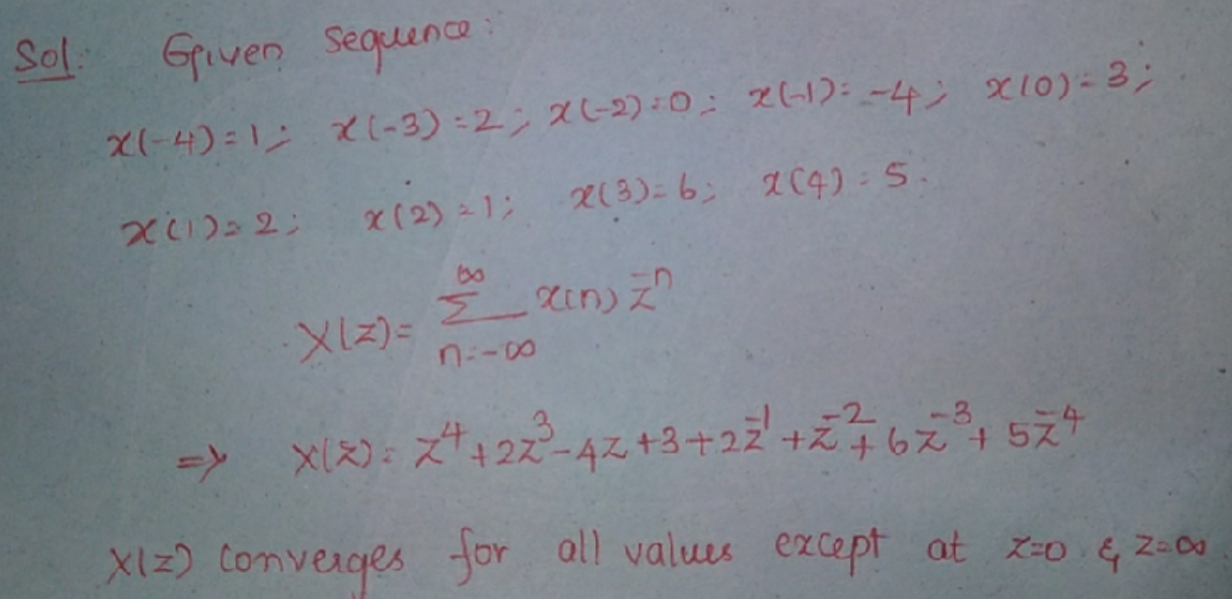 Sol: Given sequence:
x(-4)=1; x(-3)=2; x(-2)=0; x(-1)=-4; x(0)=3;
x(1)=2; x(2)=1; x(3)=6; x(4)=5.
X(z)= ∞Σn=-∞ x(n) z⁻ⁿ
=> X(z)= z⁴+2z³-4z+3+2z⁻¹+z⁻²+6z⁻³+5z⁻⁴
X(z) converges for all values except at z=0 & z=∞